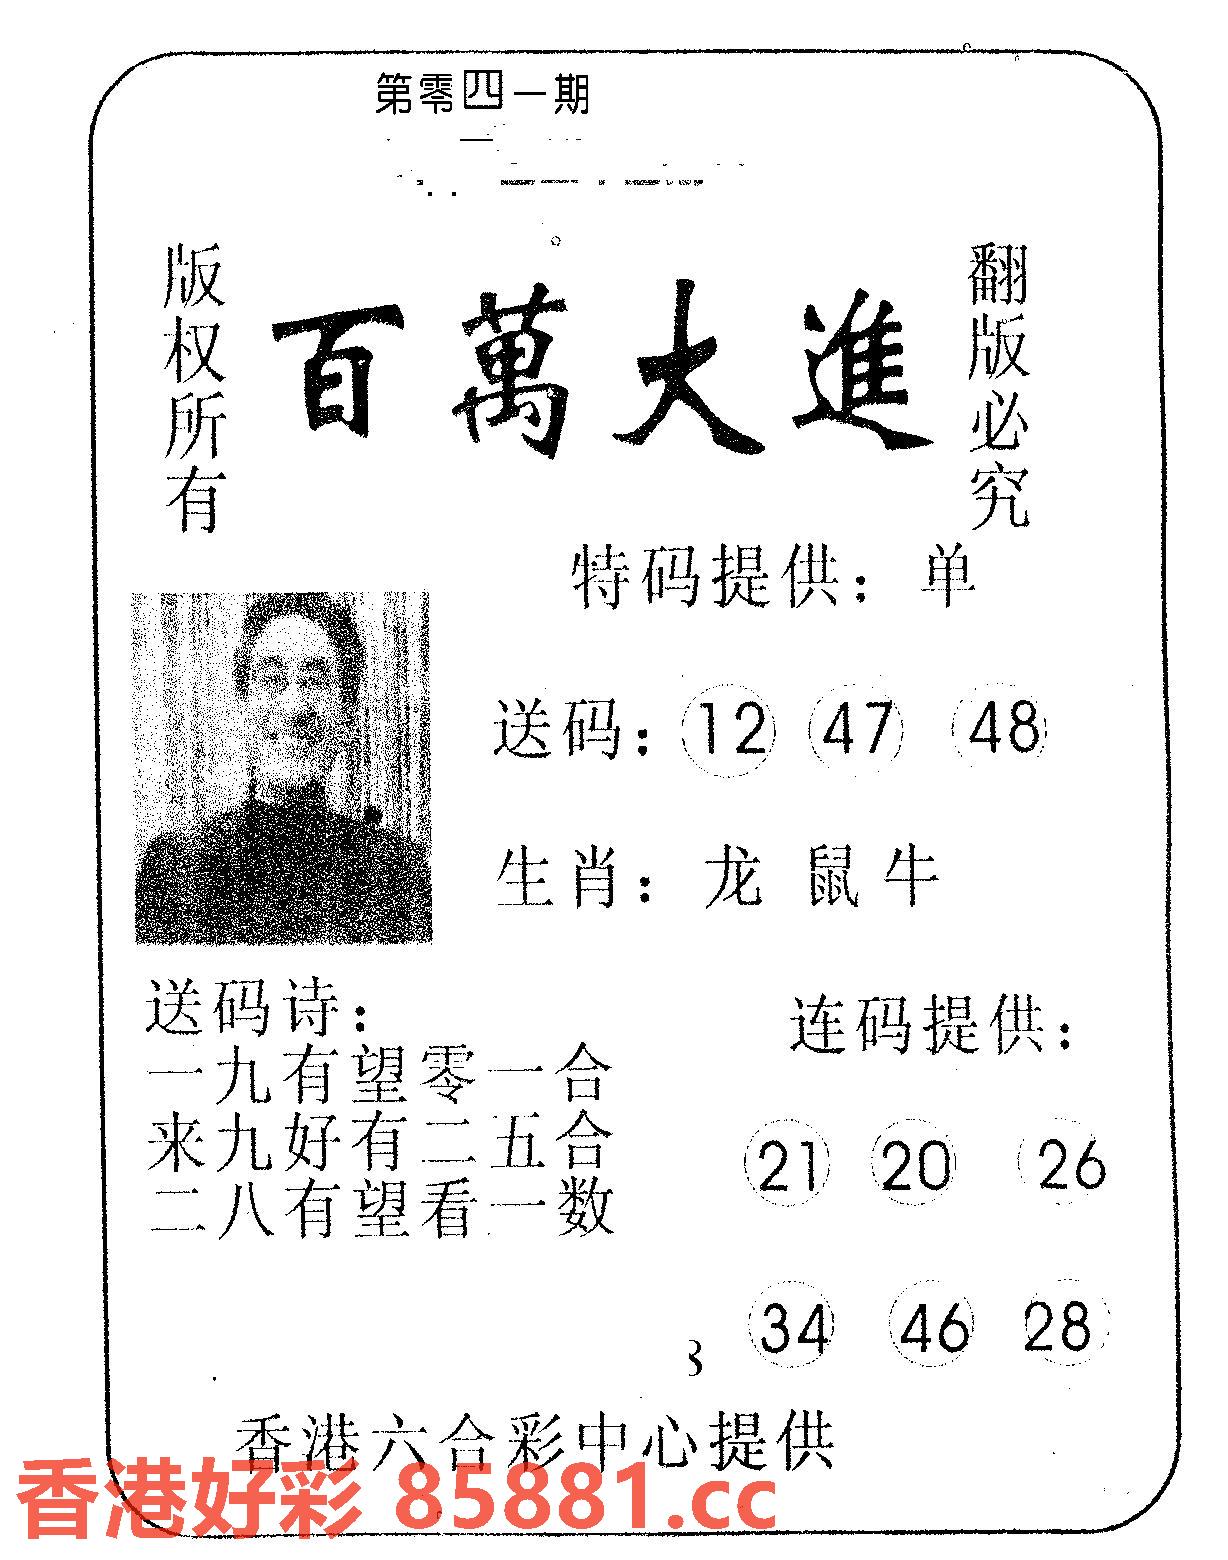 第零四一期
版权所有
百萬大進
翻版必究
特码提供：单
送码：12 47 48
生肖：龙 鼠 牛
送码诗：
一九有望零一合
来九好有二五合
二八有望看一数
连码提供：
21 20 26
34 46 28
香港六合彩中心提供
香港好彩 85881.cc